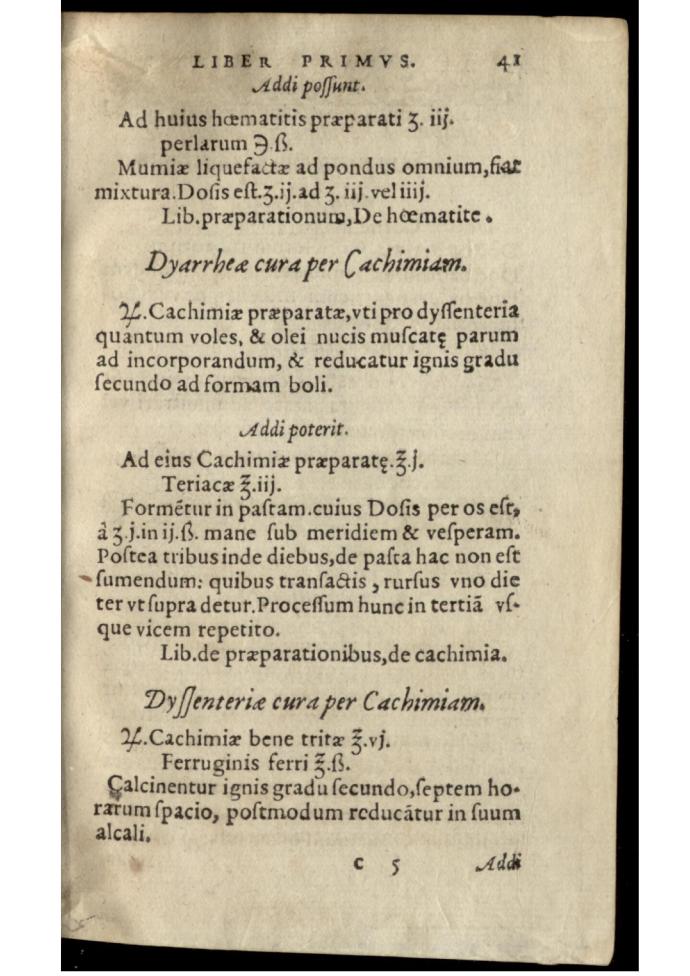 LIBER PRIMVS. 41
Addi poſſunt.
Ad huius hœmatitis præparati ʒ. iij.
perlarum ℈.ß.
Mumiæ liquefactæ ad pondus omnium,fiat
mixtura.Doſis eſt.ʒ.ij.ad ʒ. iij.vel iiij.
Lib.præparationum,De hœmatite.
Dyarrheæ cura per Cachimiam.
♃.Cachimiæ præparatæ,vti pro dyſſenteria
quantum voles, & olei nucis muſcatę parum
ad incorporandum, & reducatur ignis gradu
ſecundo ad formam boli.
Addi poterit.
Ad eius Cachimiæ præparatę.℥.j.
Teriacæ ℥.iij.
Formẽtur in paſtam.cuius Doſis per os eſt,
â ʒ.j.in ij.ß. mane ſub meridiem & veſperam.
Poſtea tribus inde diebus,de paſta hac non eſt
ſumendum: quibus tranſactis, rurſus vno die
ter vt ſupra detur.Proceſſum hunc in tertiã vſ-
que vicem repetito.
Lib.de præparationibus,de cachimia.
Dyſſenteriæ cura per Cachimiam.
♃.Cachimiæ bene tritæ ℥.vj.
Ferruginis ferri ℥.ß.
Calcinentur ignis gradu ſecundo,ſeptem ho-
rarum ſpacio, poſtmodum reducãtur in ſuum
alcali.
C 5 Addi